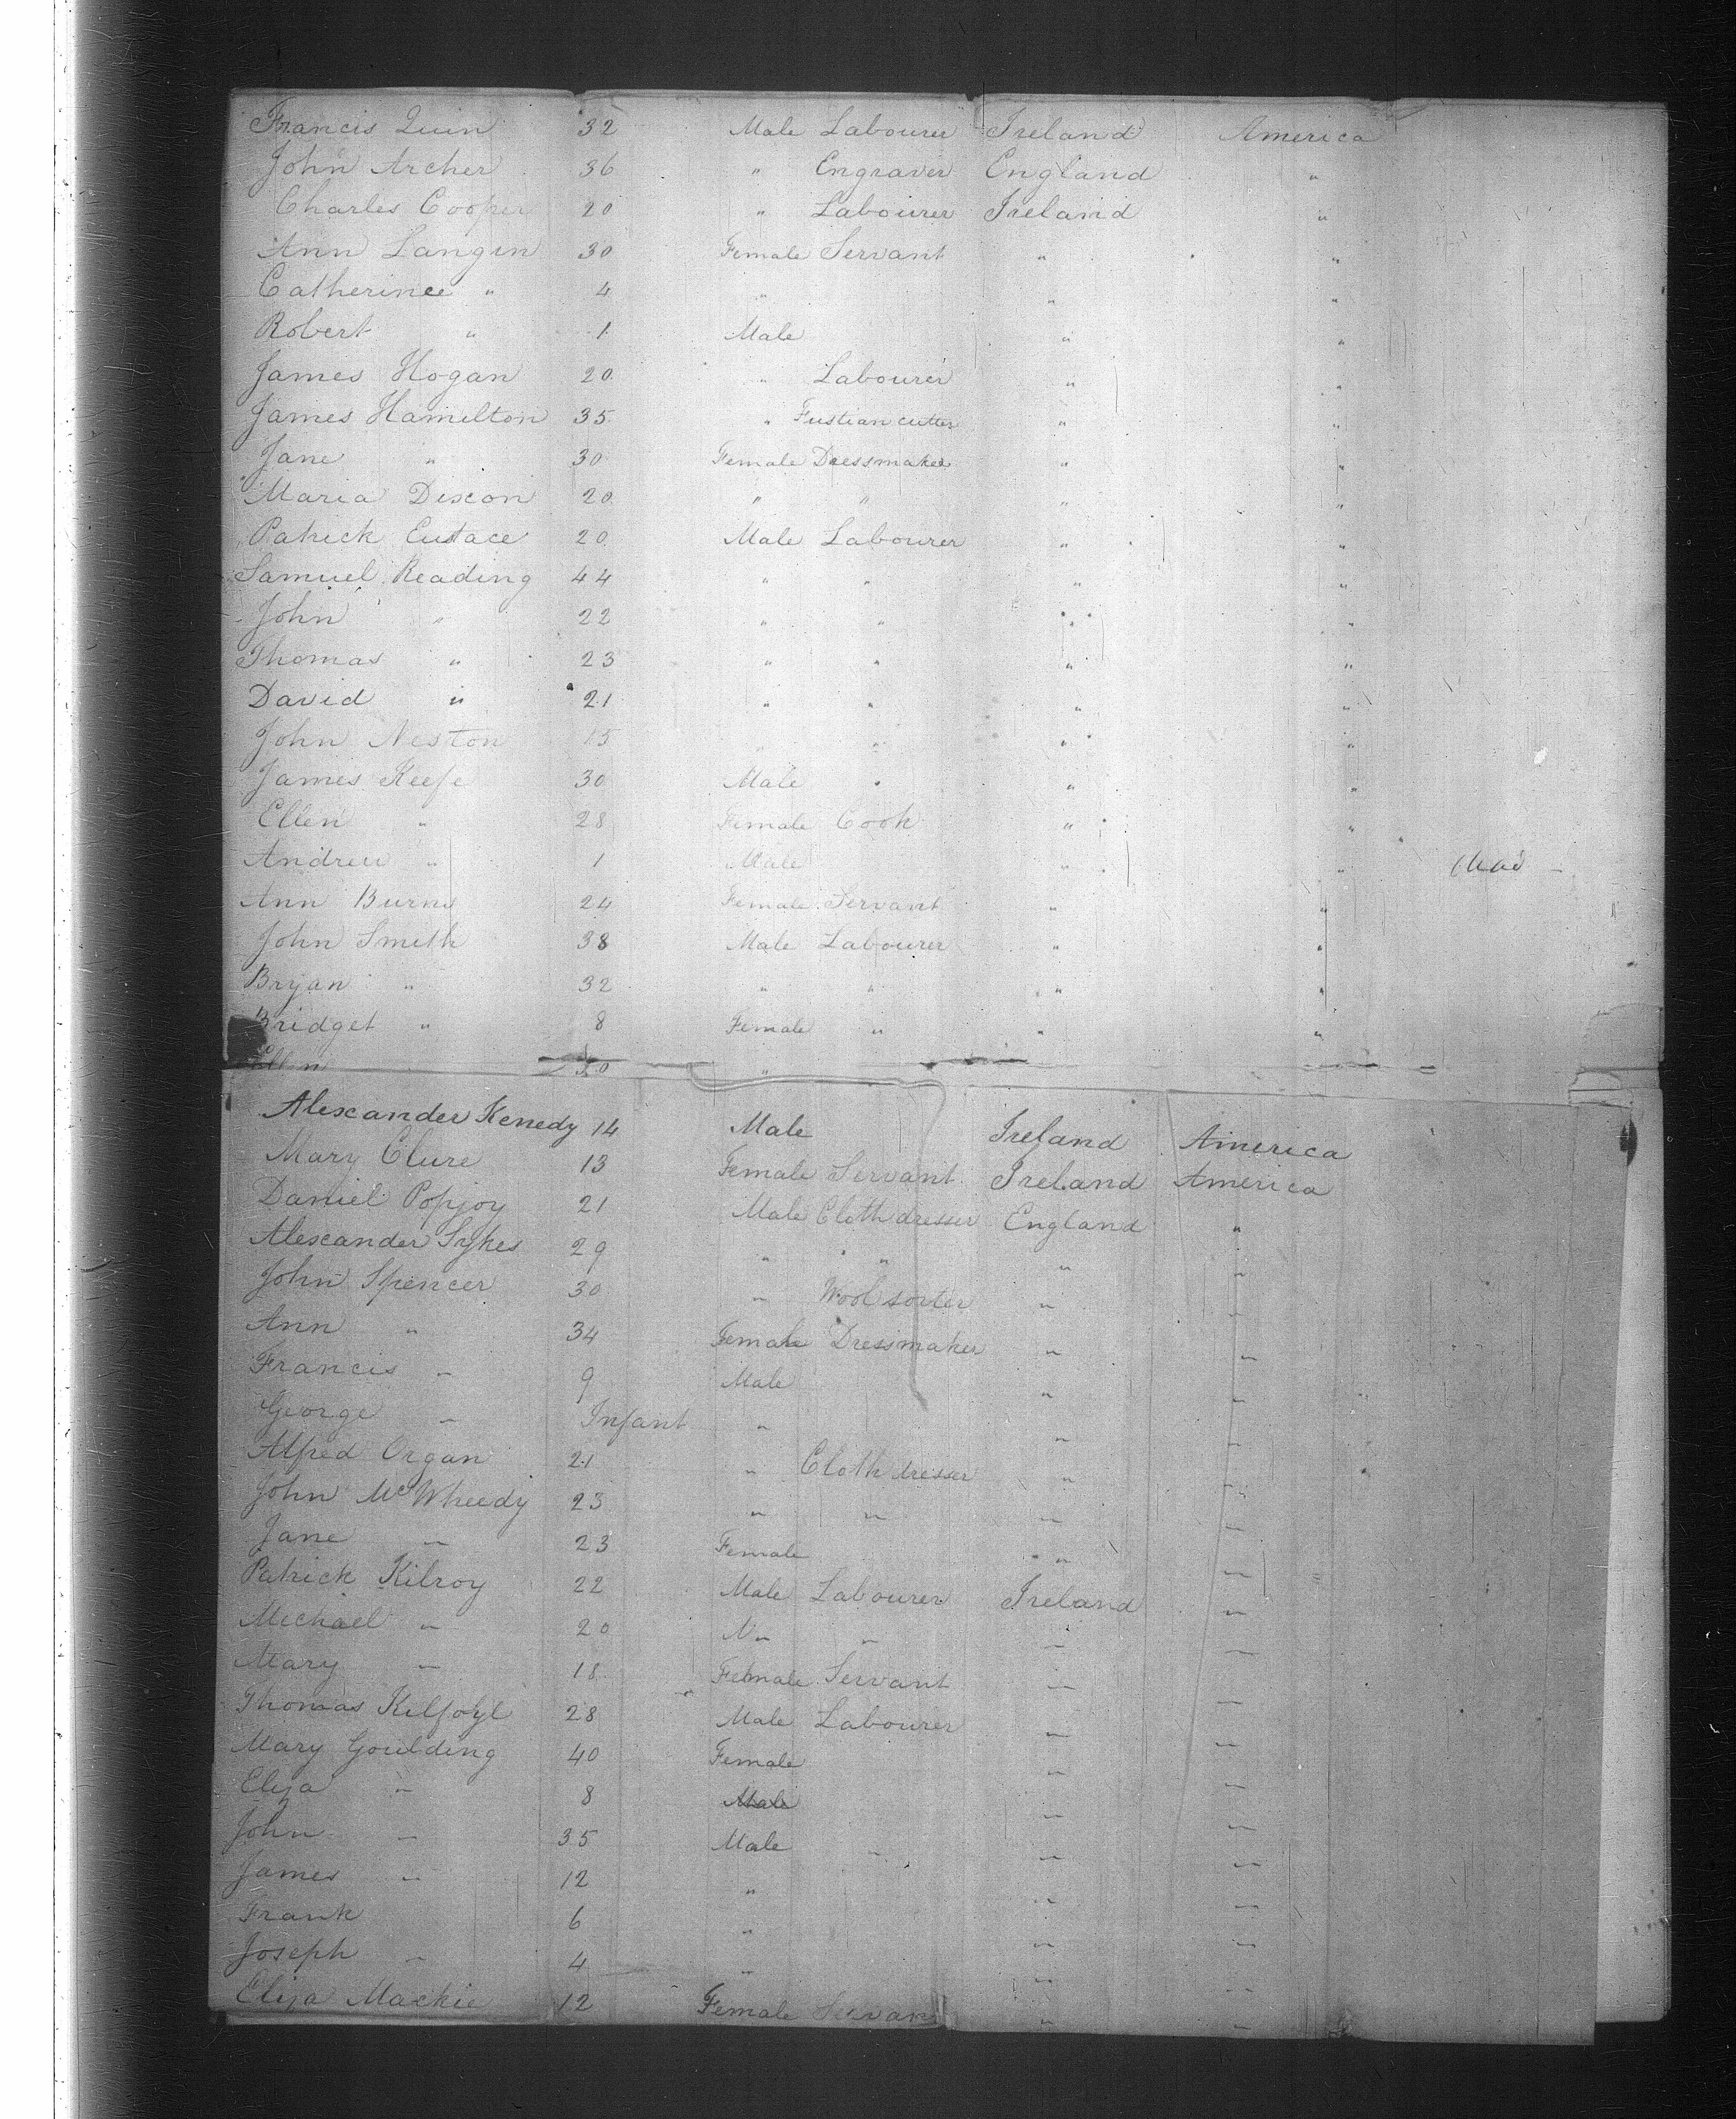 Francis Quin 32 Male Labourer Ireland America
John Archer 36 " Engraver England "
Charles Cooper 20 " Labourer Ireland "
Ann Langin 30 Female Servant " "
Catherine " 4 " " "
Robert " 1 Male " "
James Hogan 20 " Labourer " "
James Hamelton 35 " Fustian cutter " "
Jane " 30 Female Dressmaker " "
Maria Dixon 20 " " " "
Patrick Eustace 20 Male Labourer " "
Samuel Reading 44 " " " "
John " 22 " " " "
Thomas " 23 " " " "
David " 21 " " " "
John Neston 15 " " " "
James Keefe 30 Male " " "
Ellen " 28 Female Cook " "
Andrew " 1 Male " "
Ann Burns 24 Female Servant " "
John Smith 38 Male Labourer " "
Bryan " 32 " " " "
Bridget " 8 Female " " "
Ellen 30 "
Alexander Kenedy 14 Male Ireland America
Mary Clure 13 Female Servant Ireland America
Daniel Popjoy 21 Male Cloth dresser England "
Alexander Sykes 29 " " " "
John Spencer 30 " Wool sorter " "
Ann " 34 Female Dressmaker " "
Francis " 9 Male " "
George " Infant " " "
Alfred Organ 21 " Cloth dresser " "
John McWheedy 23 " " " "
Jane " 23 Female " "
Patrick Kilroy 22 Male Labourer Ireland "
Michael " 20 " " " "
Mary " 18 Female Servant " "
Thomas Kilfoyl 28 Male Labourer " "
Mary Goulding 40 Female " "
Eliza " 8 Male " "
John " 35 Male " " "
James " 12 " " "
Frank 6 " " "
Joseph " 4 " " "
Eliza Mackie 12 Female Servan " "